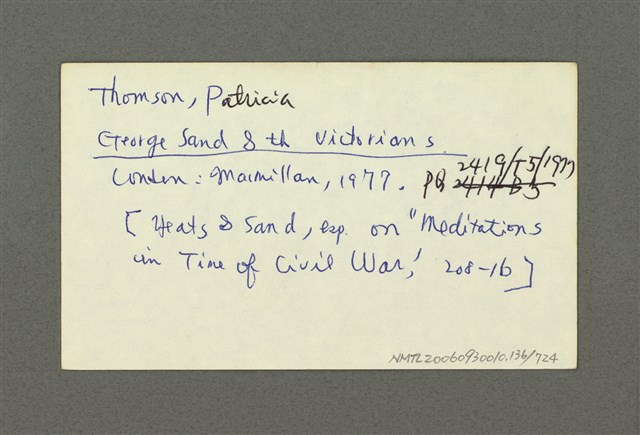 Thomson, Patricia
George Sand & th Victorians
London: Macmillan, 1977. PQ 2419/T5/1977
2414 B5
[ Yeats & Sand, esp. on "Meditations
in Time of Civil War," 208-16 ]
NMTL20060930010.136/724